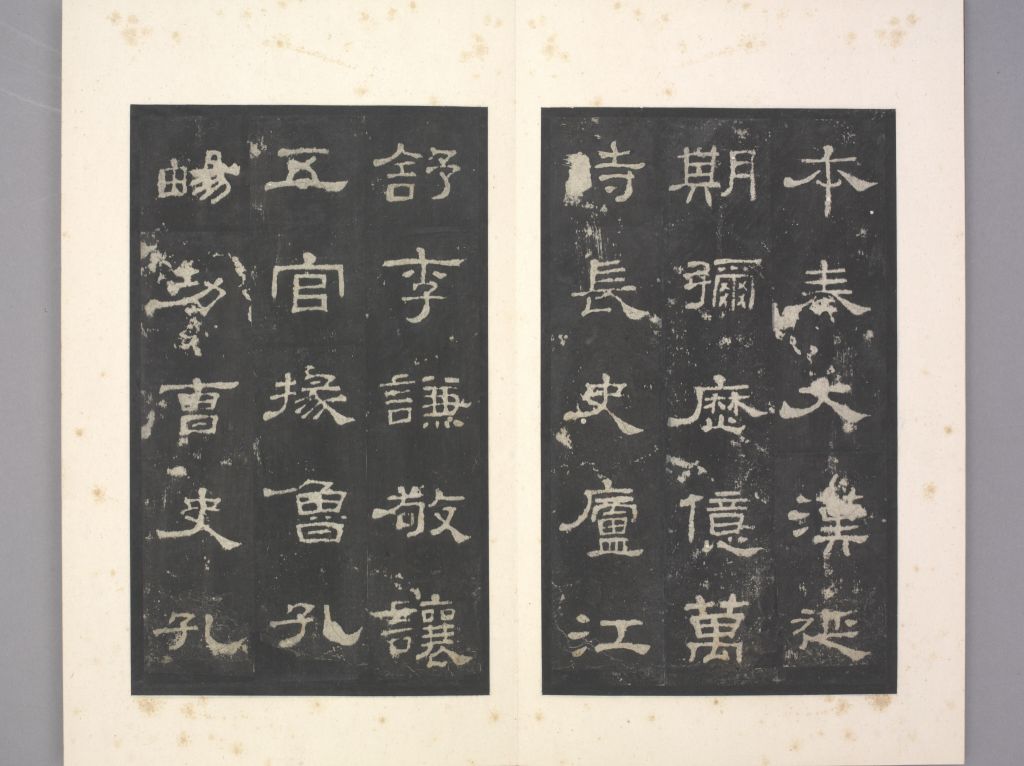 本奏大漢延
期彌歷億萬
時長史廬江
舒李謙敬讓
五官掾魯孔
暢功曹史孔